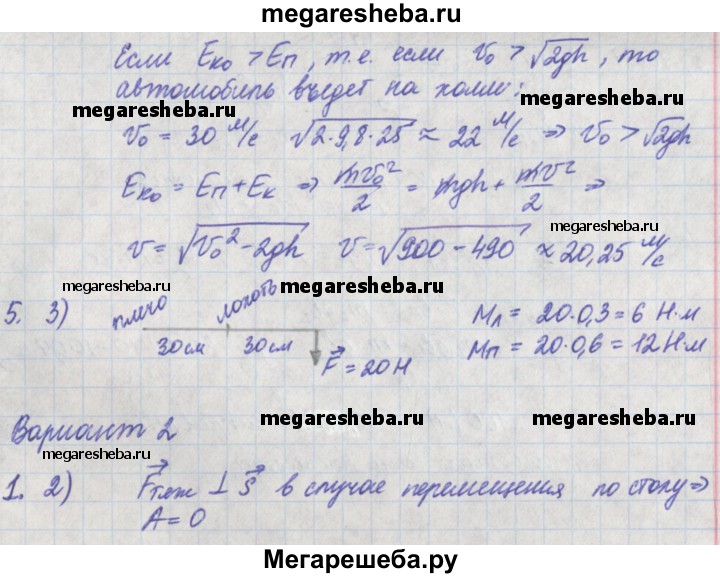 megaresheba.ru
Если Eко > Eп, т.е. если v₀ > √2gh, то
автомобиль въедет на холм:
megaresheba.ru megaresheba.ru
v₀ = 30 м/с √2·9,8·25 ≈ 22 м/с ⇒ v₀ > √2gh
Eко = Eп + Eк ⇒ mv₀²/2 = mgh + mv²/2 ⇒
megaresheba.ru
v = √v₀² - 2gh v = √900 - 490 ≈ 20,25 м/с
megaresheba.ru megaresheba.ru
5. 3) плечо локоть Mл = 20·0,3 = 6 Н·м
30см 30см Mп = 20·0,6 = 12Н·м
F = 20Н
megaresheba.ru megaresheba.ru
Вариант 2
megaresheba.ru
1. 2) Fтяж ⊥ s в случае перемещения по столу ⇒
megaresheba.ru megaresheba.ru
A = 0
Мегарешеба.ру